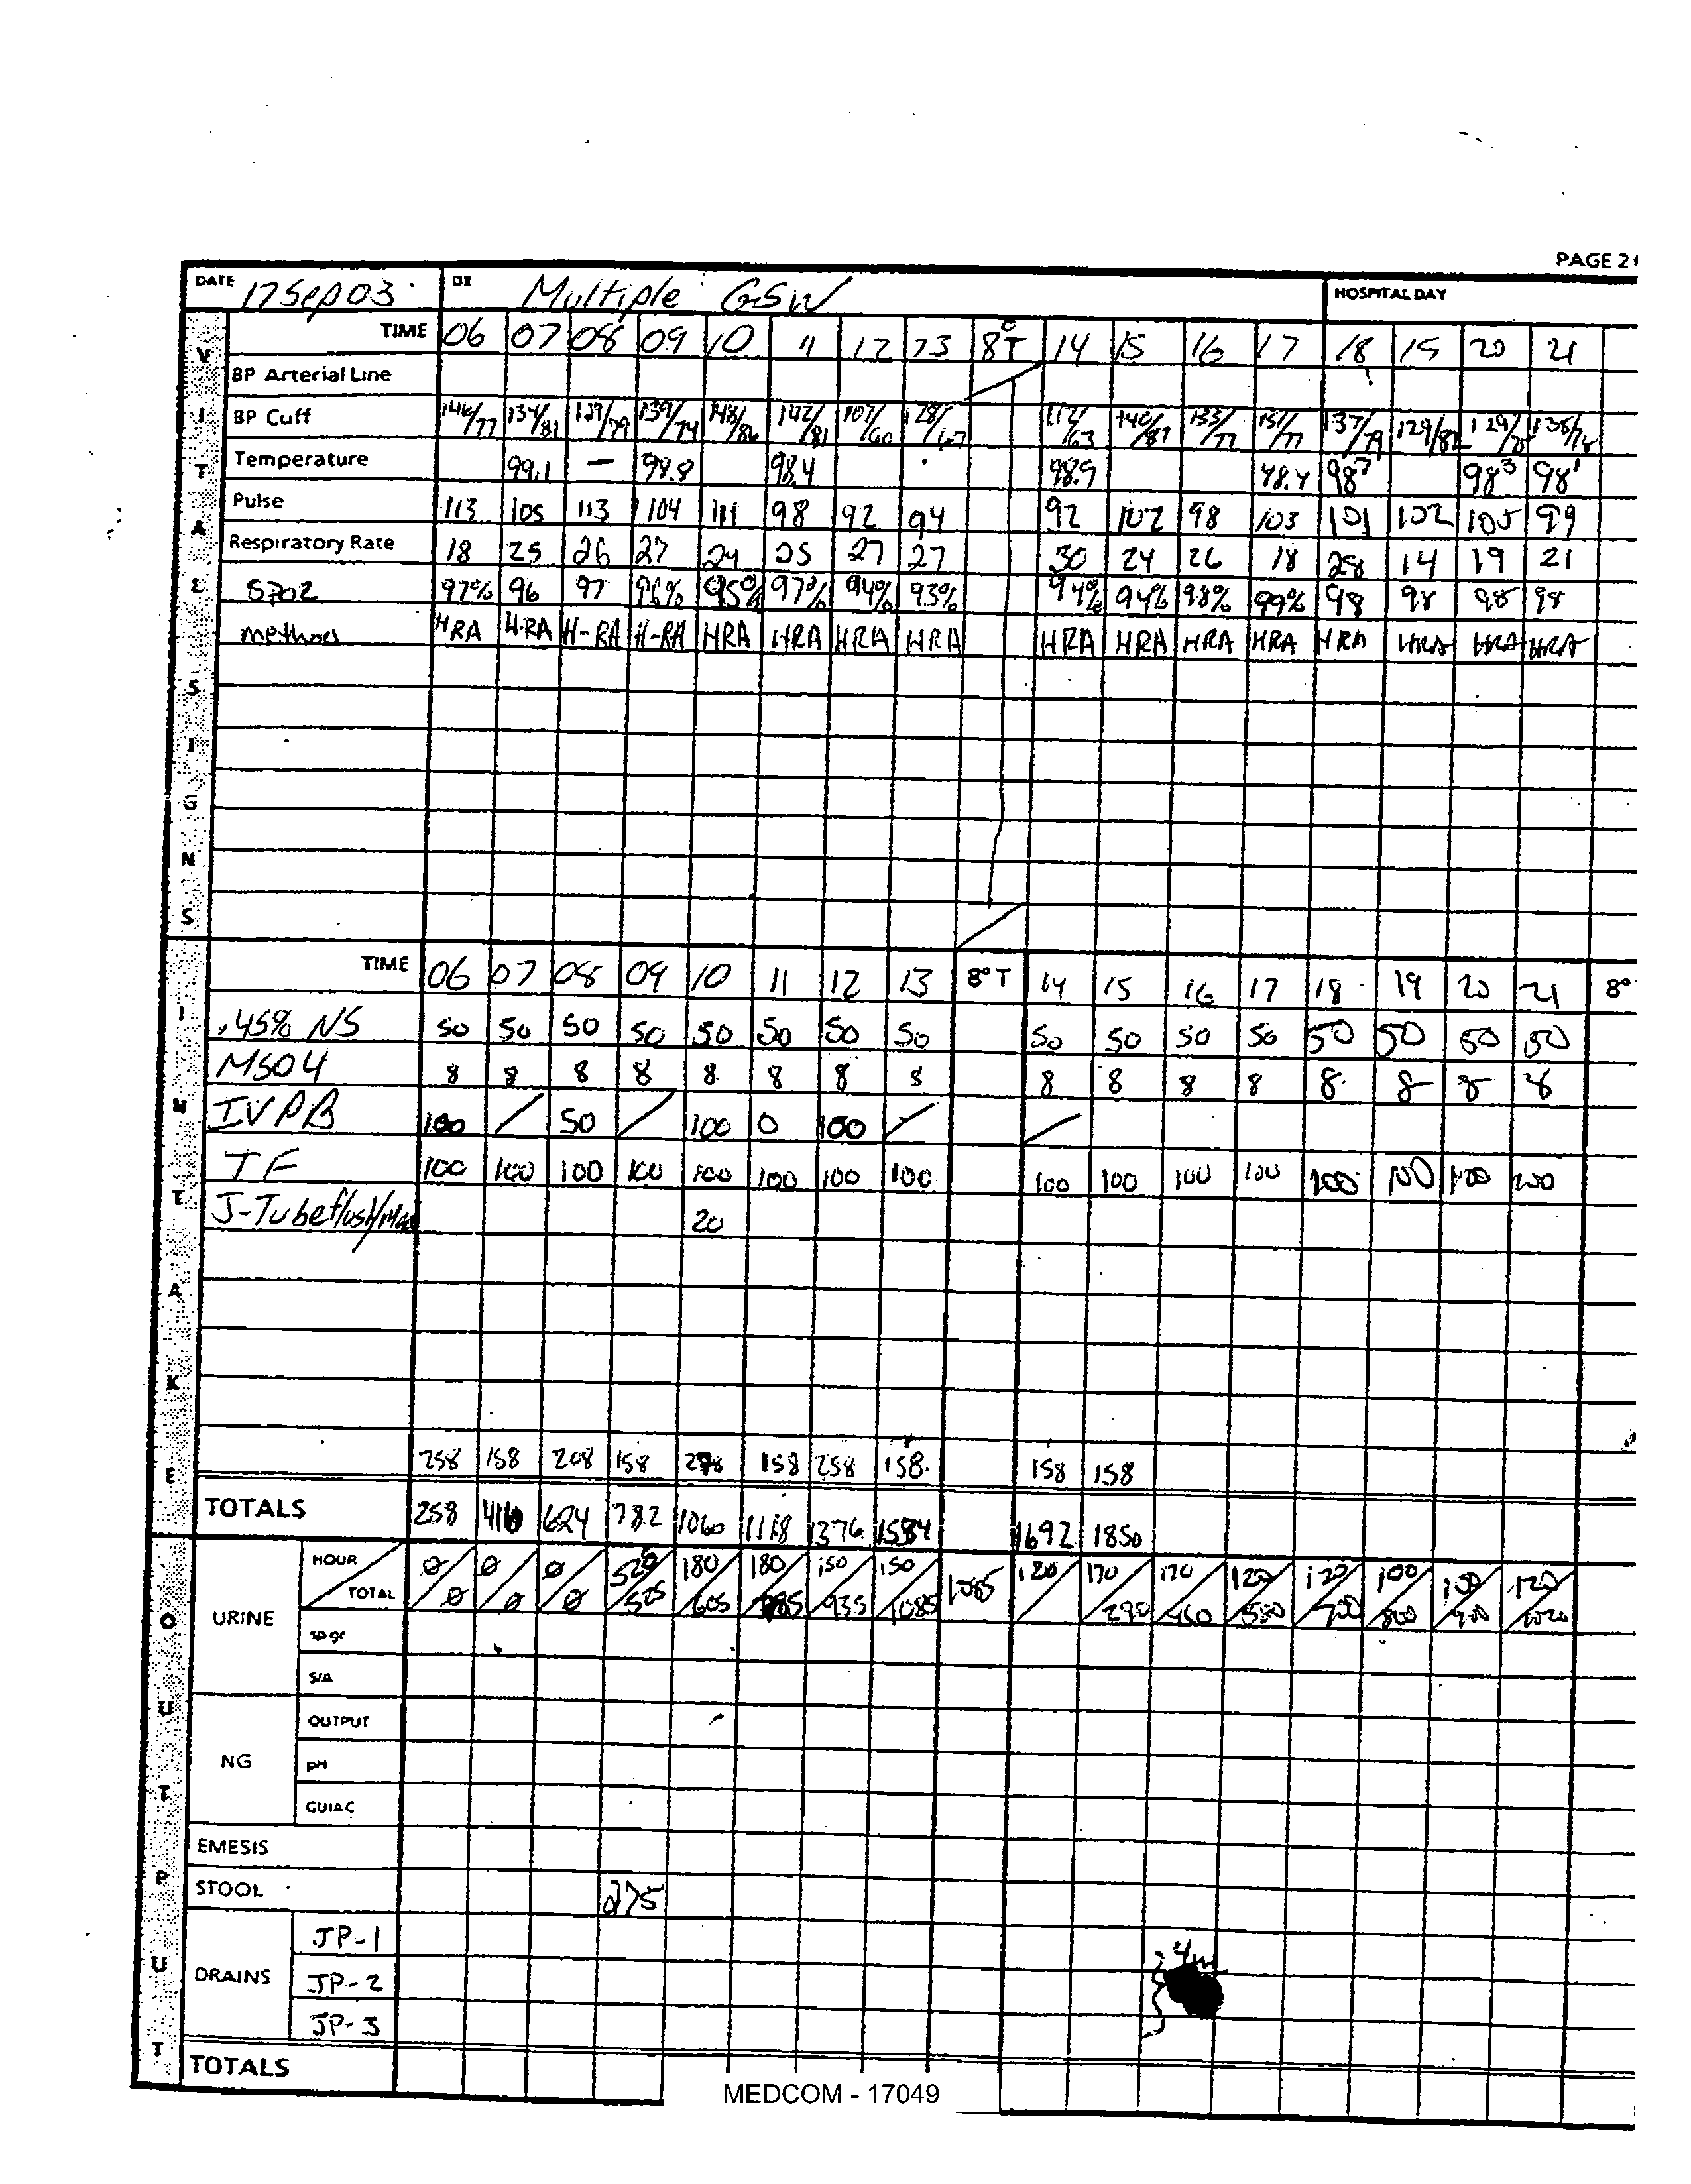 PAGE 2
DATE 17 Sep 03 DX Multiple GSW HOSPITAL DAY
VITAL SIGNS
TIME 06 07 08 09 10 11 12 13 8°T 14 15 16 17 18 19 20 21
BP Arterial Line
BP Cuff 146/77 134/81 139/74 143/86 142/81 107/60 128/67 112/63 140/87 133/77 151/77 137/79 129/82 129/75
Temperature 99.1 — 98.8 98.4 98.9 98.4 98⁷ 98³ 98¹
Pulse 113 105 113 104 111 98 92 94 92 102 98 103 101 102 105 99
Respiratory Rate 18 25 26 27 24 25 27 27 30 24 26 18 28 14 19 21
SPO2 97% 96 97 96% 95% 97% 94% 93% 94% 94% 98% 99% 98 98 98 98
method HRA H-RA H-RA H-RA HRA HRA HRA HRA HRA HRA HRA HRA HRA HRA HRA HRA
INTAKE
TIME 06 07 08 09 10 11 12 13 8°T 14 15 16 17 18 19 20 21 8°
.45% NS 50 50 50 50 50 50 50 50 50 50 50 50 50 50 50 50
MSO4 8 8 8 8 8 8 8 8 8 8 8 8 8 8 8 8
IVPB 100 / 50 / 100 0 100 / /
TF 100 100 100 100 100 100 100 100 100 100 100 100 100 100 100 100
J-Tube flush/ 20
258 158 208 158 278 158 258 158 158 158
TOTALS 258 416 624 782 1060 1118 1376 1534 1692 1850
OUTPUT
URINE
HOUR 0 0 0 525 180 180 150 150 120 170 170 120 120 100 100 120
TOTAL 0 0 0 525 605 785 935 1085 1085 290 460 580 700 800 900 1020
sp gr
S/A
NG
OUTPUT
pH
GUIAC
EMESIS
STOOL 275
DRAINS
JP-1
JP-2
JP-3
TOTALS
MEDCOM - 17049